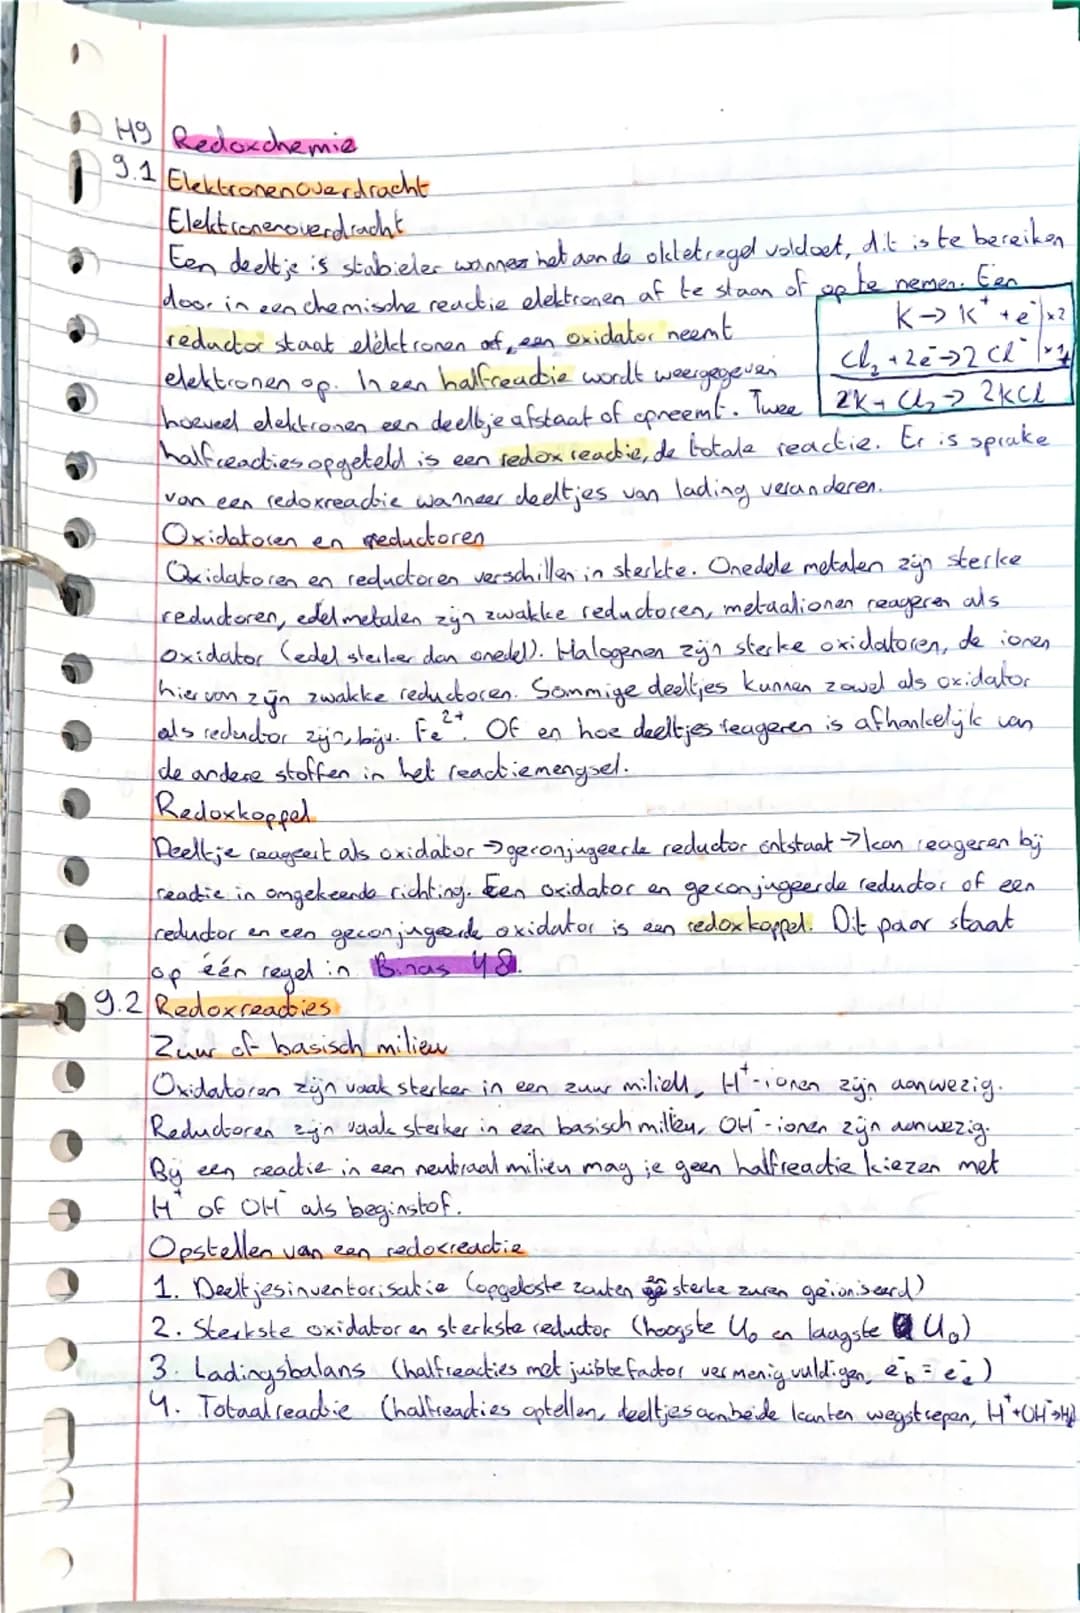 H9 Redoxchemie
9.1 Elektronenoverdracht
Elektronenoverdracht
Een deeltje is stabieler wanneer het aan de oktetregel voldoet, dit is te bereiken
door in een chemische reactie elektronen af te staan of op te nemen. Een
reductor staat elektronen af, een oxidator neemt
elektronen op. In een halfreactie wordt weergegeven
hoeveel elektronen een deeltje afstaat of opneemt. Twee
halfreacties opgeteld is een redoxreactie, de totale reactie. Er is sprake
van een redoxreactie wanneer deeltjes van lading veranderen.
K → K⁺ + e⁻ |x2
Cl₂ + 2e⁻ → 2 Cl⁻ |x1
2K + Cl₂ → 2KCl
Oxidatoren en reductoren
Oxidatoren en reductoren verschillen in sterkte. Onedele metalen zijn sterke
reductoren, edelmetalen zijn zwakke reductoren, metaalionen reageren als
oxidator (edel sterker dan onedel). Halogenen zijn sterke oxidatoren, de ionen
hiervan zijn zwakke reductoren. Sommige deeltjes kunnen zowel als oxidator
als reductor zijn, bijv. Fe²⁺. Of en hoe deeltjes reageren is afhankelijk van
de andere stoffen in het reactiemengsel.
Redoxkoppel
Deeltje reageert als oxidator → geconjugeerde reductor ontstaat → kan reageren bij
reactie in omgekeerde richting. Een oxidator en geconjugeerde reductor of een
reductor en een geconjugeerde oxidator is een redoxkoppel. Dit paar staat
op één regel in Binas 48.
9.2 Redoxreacties
Zuur of basisch milieu
Oxidatoren zijn vaak sterker in een zuur milieu, H⁺-ionen zijn aanwezig.
Reductoren zijn vaak sterker in een basisch milieu, OH⁻-ionen zijn aanwezig.
Bij een reactie in een neutraal milieu mag je geen halfreactie kiezen met
H⁺ of OH⁻ als beginstof.
Opstellen van een redoxreactie
1. Deeltjesinventarisatie (opgeloste zouten en sterke zuren geïoniseerd)
2. Sterkste oxidator en sterkste reductor (hoogste U₀ en laagste U₀)
3. Ladingsbalans (halfreacties met juiste factor vermenigvuldigen,
4. Totaalreactie (halfreacties optellen, deeltjes aan beide kanten wegstrepen, H⁺+OH⁻→